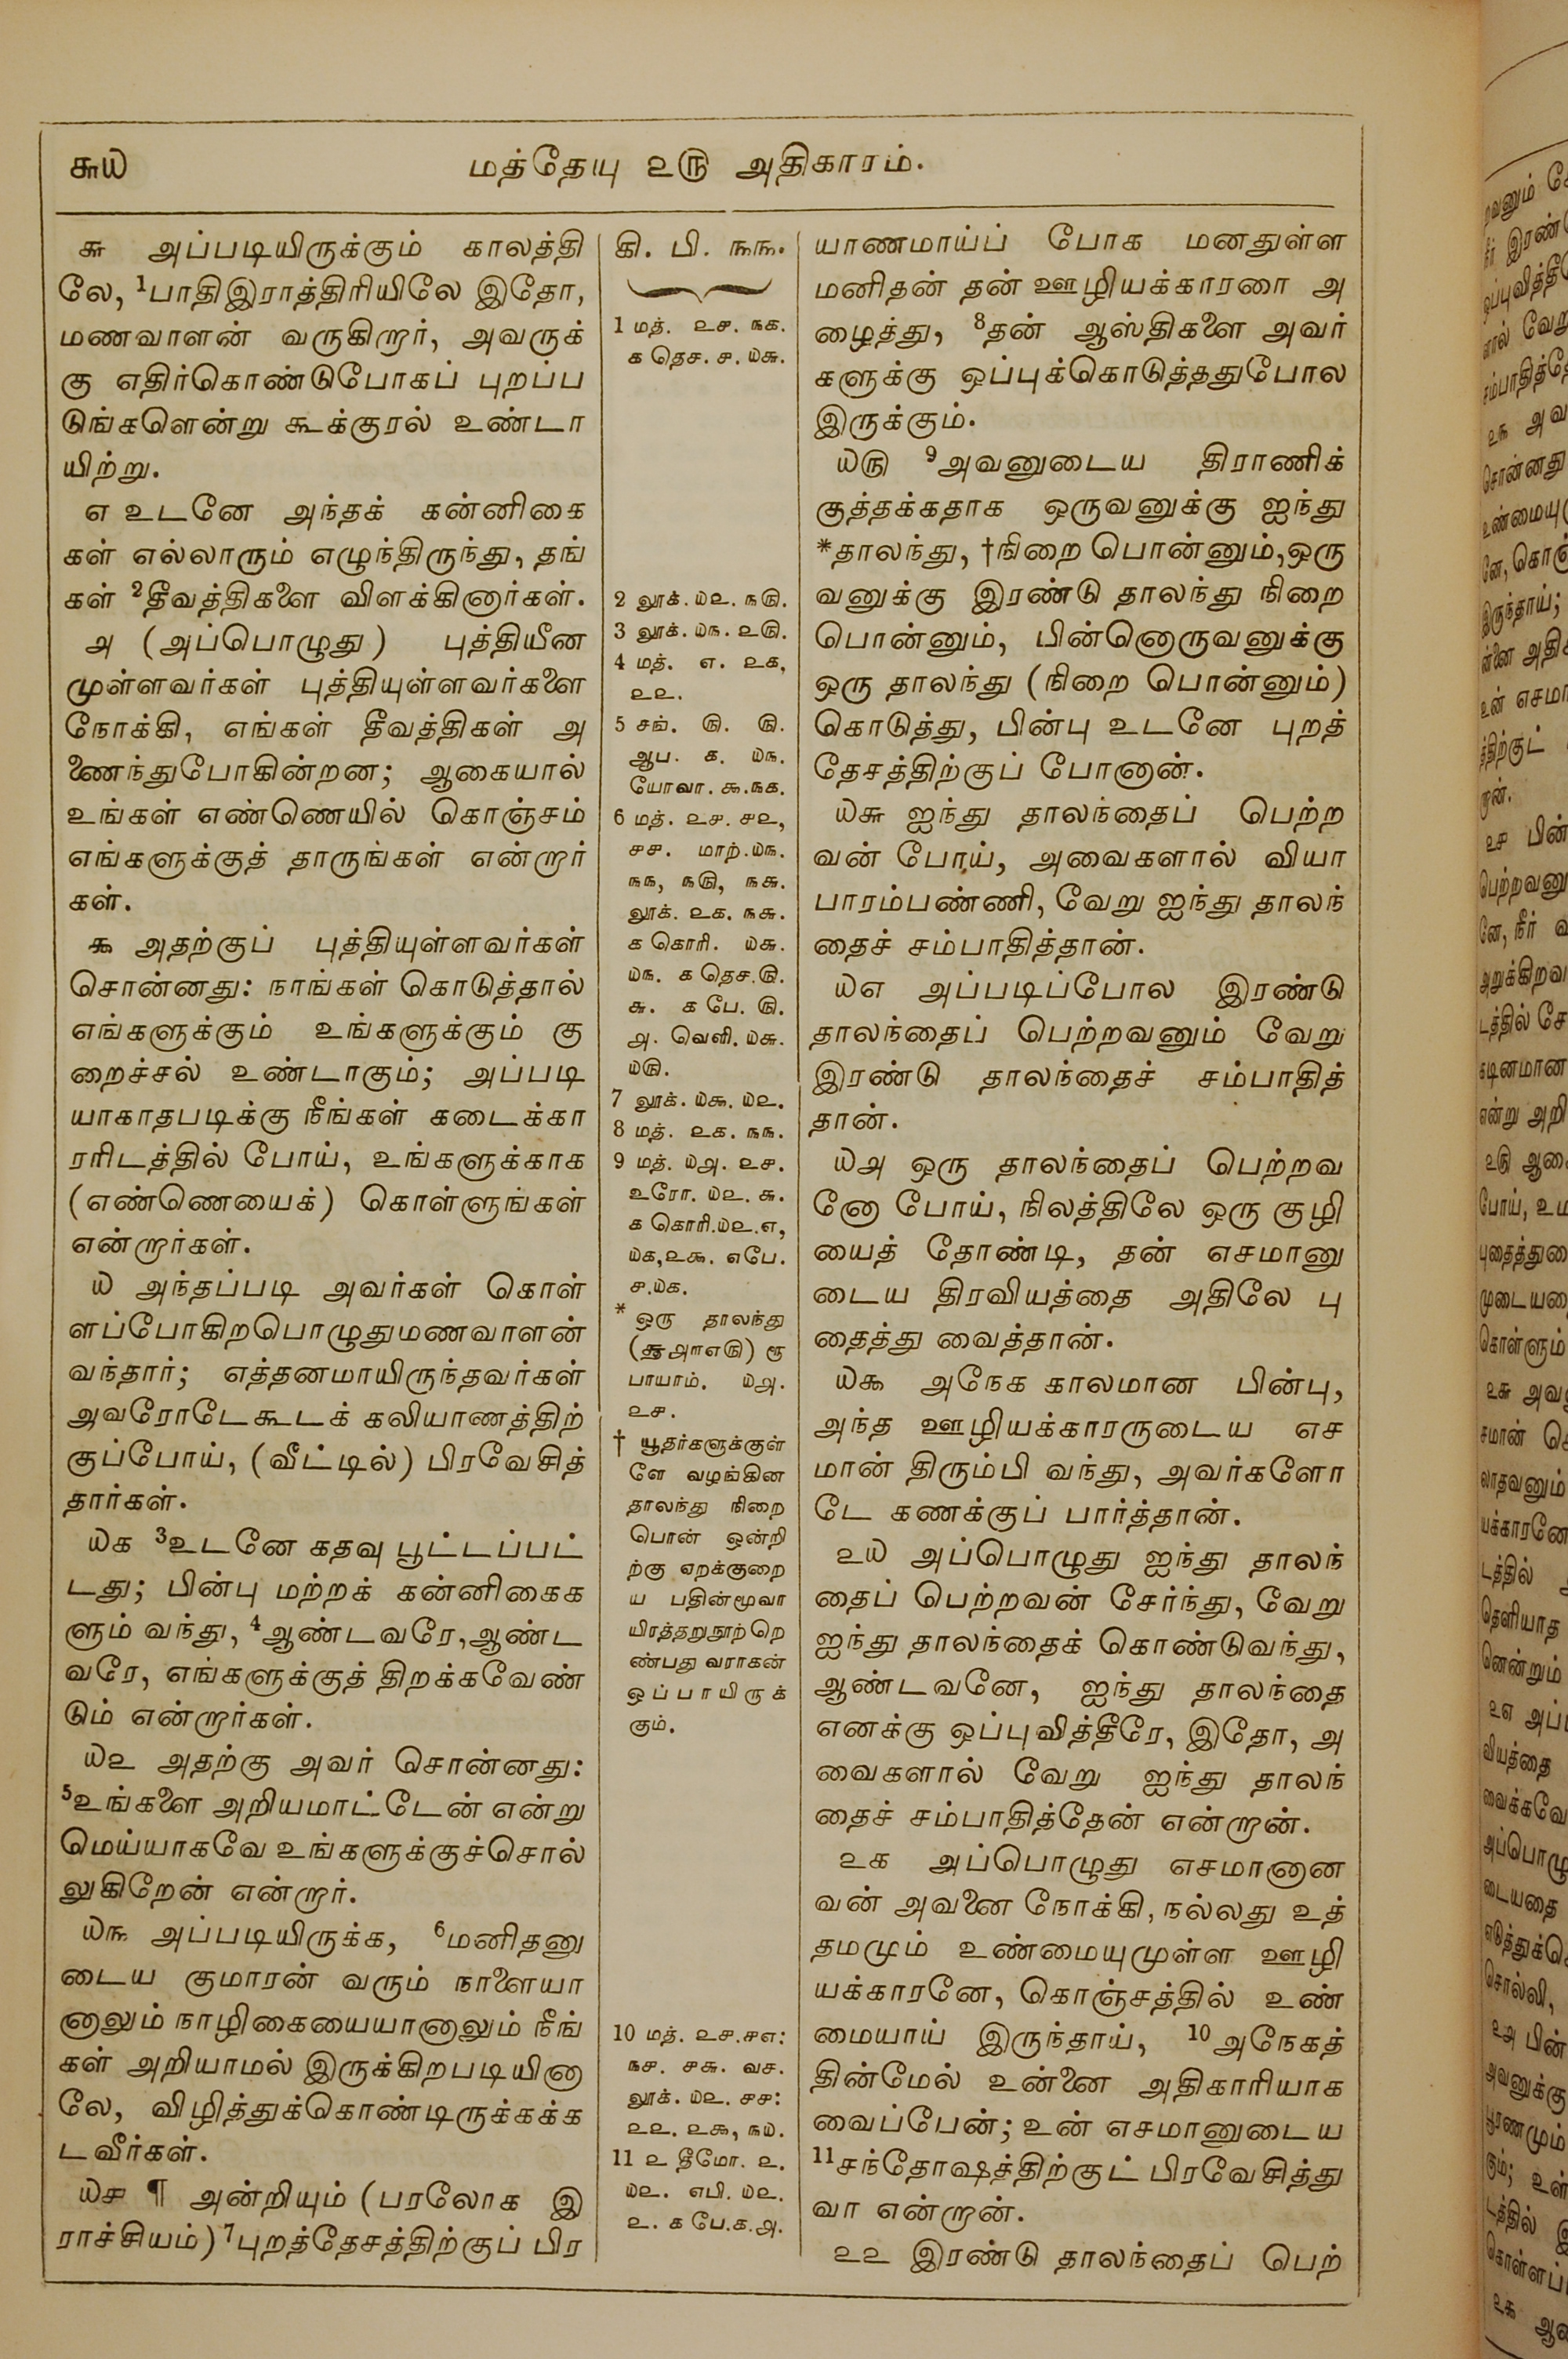 ௬௰
மத்தேயு ௨௫ அதிகாரம்.
௬ அப்படியிருக்கும் காலத்தி
லே, 1பாதிஇராத்திரியிலே இதோ,
மணவாளன் வருகிறார், அவருக்
கு எதிர்கொண்டுபோகப் புறப்ப
டுங்களென்று கூக்குரல் உண்டா
யிற்று.
௭ உடனே அந்தக் கன்னிகை
கள் எல்லாரும் எழுந்திருந்து, தங்
கள் 2தீவத்திகளை விளக்கினார்கள்.
௮ (அப்பொழுது) புத்தியீன
முள்ளவர்கள் புத்தியுள்ளவர்களை
நோக்கி, எங்கள் தீவத்திகள் அ
ணைந்துபோகின்றன; ஆகையால்
உங்கள் எண்ணெயில் கொஞ்சம்
எங்களுக்குத் தாருங்கள் என்றார்
கள்.
௯ அதற்குப் புத்தியுள்ளவர்கள்
சொன்னது: நாங்கள் கொடுத்தால்
எங்களுக்கும் உங்களுக்கும் கு
றைச்சல் உண்டாகும்; அப்படி
யாகாதபடிக்கு நீங்கள் கடைக்கா
ரரிடத்தில் போய், உங்களுக்காக
(எண்ணெயைக்) கொள்ளுங்கள்
என்றார்கள்.
௰ அந்தப்படி அவர்கள் கொள்
ளப்போகிறபொழுதுமணவாளன்
வந்தார்; எத்தனமாயிருந்தவர்கள்
அவரோடேகூடக் கலியாணத்திற்
குப்போய், (வீட்டில்) பிரவேசித்
தார்கள்.
௰௧ 3உடனே கதவு பூட்டப்பட்
டது; பின்பு மற்றக் கன்னிகைக
ளும் வந்து, 4ஆண்டவரே,ஆண்ட
வரே, எங்களுக்குத் திறக்கவேண்
டும் என்றார்கள்.
௰௨ அதற்கு அவர் சொன்னது:
5உங்களை அறியமாட்டேன் என்று
மெய்யாகவே உங்களுக்குச்சொல்
லுகிறேன் என்றார்.
௰௩ அப்படியிருக்க, 6மனிதனு
டைய குமாரன் வரும் நாளையா
னாலும் நாழிகையையானாலும் நீங்
கள் அறியாமல் இருக்கிறபடியினா
லே, விழித்துக்கொண்டிருக்கக்க
டவீர்கள்.
௰௪ ¶ அன்றியும் (பரலோக இ
ராச்சியம்) 7புறத்தேசத்திற்குப் பிர
கி. பி. ௩௩.
1 மத். ௨௪. ௩௧.
௧ தெச. ௪. ௰௬.
2 லூக். ௰௨. ௩௫.
3 லூக். ௰௩. ௨௫.
4 மத். ௭. ௨௧,
௨௨.
5 சங். ௫. ௫.
ஆப. ௧. ௰௩.
யோவா. ௯.௩௧.
6 மத். ௨௪. ௪௨,
௪௪. மாற்.௰௩.
௩௩, ௩௫, ௩௬.
லூக். ௨௧. ௩௬.
௧ கொரி. ௰௬.
௰௩. ௧ தெச.௫.
௬. ௧ பே. ௫.
௮. வெளி. ௰௬.
௰௫.
7 லூக். ௰௯. ௰௨.
8 மத். ௨௧. ௩௩.
9 மத். ௰௮. ௨௪.
உரோ. ௰௨. ௬.
௧ கொரி.௰௨.௭,
௰௧,௨௯. எபே.
௪.௰௧.
* ஒரு தாலந்து
(௲௮௱௭௫) ரூ
பாயாம். ௰௮.
௨௪.
† யூதர்களுக்குள்
ளே வழங்கின
தாலந்து நிறை
பொன் ஒன்றி
ற்கு ஏறக்குறை
ய பதின்மூவா
யிரத்தறுநூற்றெ
ண்பது வராகன்
ஒப்பாயிருக்
கும்.
10 மத். ௨௪.௪௭:
௩௪. ௪௬. வச.
லூக். ௰௨. ௪௪:
௨௨. ௨௯, ௩௰.
11 ௨ தீமோ. ௨.
௰௨. எபி. ௰௨.
௨. ௧ பே.௧.௮.
யாணமாய்ப் போக மனதுள்ள
மனிதன் தன் ஊழியக்காரரை அ
ழைத்து, 8தன் ஆஸ்திகளை அவர்
களுக்கு ஒப்புக்கொடுத்ததுபோல
இருக்கும்.
௰௫ 9அவனுடைய திராணிக்
குத்தக்கதாக ஒருவனுக்கு ஐந்து
*தாலந்து, †நிறை பொன்னும்,ஒரு
வனுக்கு இரண்டு தாலந்து நிறை
பொன்னும், பின்னொருவனுக்கு
ஒரு தாலந்து (நிறை பொன்னும்)
கொடுத்து, பின்பு உடனே புறத்
தேசத்திற்குப் போனான்.
௰௬ ஐந்து தாலந்தைப் பெற்ற
வன் போய், அவைகளால் வியா
பாரம்பண்ணி, வேறு ஐந்து தாலந்
தைச் சம்பாதித்தான்.
௰௭ அப்படிப்போல இரண்டு
தாலந்தைப் பெற்றவனும் வேறு
இரண்டு தாலந்தைச் சம்பாதித்
தான்.
௰௮ ஒரு தாலந்தைப் பெற்றவ
னோ போய், நிலத்திலே ஒரு குழி
யைத் தோண்டி, தன் எசமானு
டைய திரவியத்தை அதிலே பு
தைத்து வைத்தான்.
௰௯ அநேக காலமான பின்பு,
அந்த ஊழியக்காரருடைய எச
மான் திரும்பி வந்து, அவர்களோ
டே கணக்குப் பார்த்தான்.
௨௰ அப்பொழுது ஐந்து தாலந்
தைப் பெற்றவன் சேர்ந்து, வேறு
ஐந்து தாலந்தைக் கொண்டுவந்து,
ஆண்டவனே, ஐந்து தாலந்தை
எனக்கு ஒப்புவித்தீரே, இதோ, அ
வைகளால் வேறு ஐந்து தாலந்
தைச் சம்பாதித்தேன் என்றான்.
௨௧ அப்பொழுது எசமானான
வன் அவனை நோக்கி, நல்லது உத்
தமமும் உண்மையுமுள்ள ஊழி
யக்காரனே, கொஞ்சத்தில் உண்
மையாய் இருந்தாய், 10அநேகத்
தின்மேல் உன்னை அதிகாரியாக
வைப்பேன்; உன் எசமானுடைய
11சந்தோஷத்திற்குட் பிரவேசித்து
வா என்றான்.
௨௨ இரண்டு தாலந்தைப் பெற்